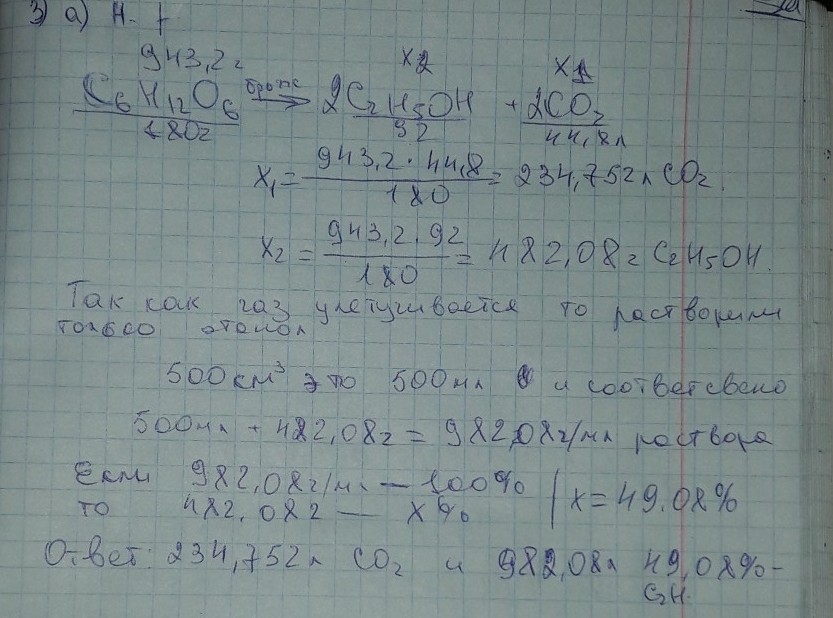 3) а) Н.
943,2 г x2 x1
C6H12O6 брож → 2C2H5OH + 2CO2
180г 92 44,8л
x1 = 943,2 · 44,8 / 180 = 234,752 л CO2.
x2 = 943,2 · 92 / 180 = 482,08 г C2H5OH.
Так как газ улетучивается то растворим
только этанол
500 км³ это 500 мл и соответсвено
500мл + 482,08г = 982,08г/мл раствора
Если 982,08г/мл — 100% | x = 49.08%
то 482,082 — x%
Ответ: 234,752л CO2 и 982,08л 49,08%-
C2H